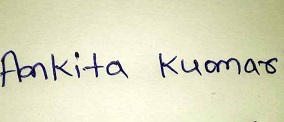 Ankita Kuomar